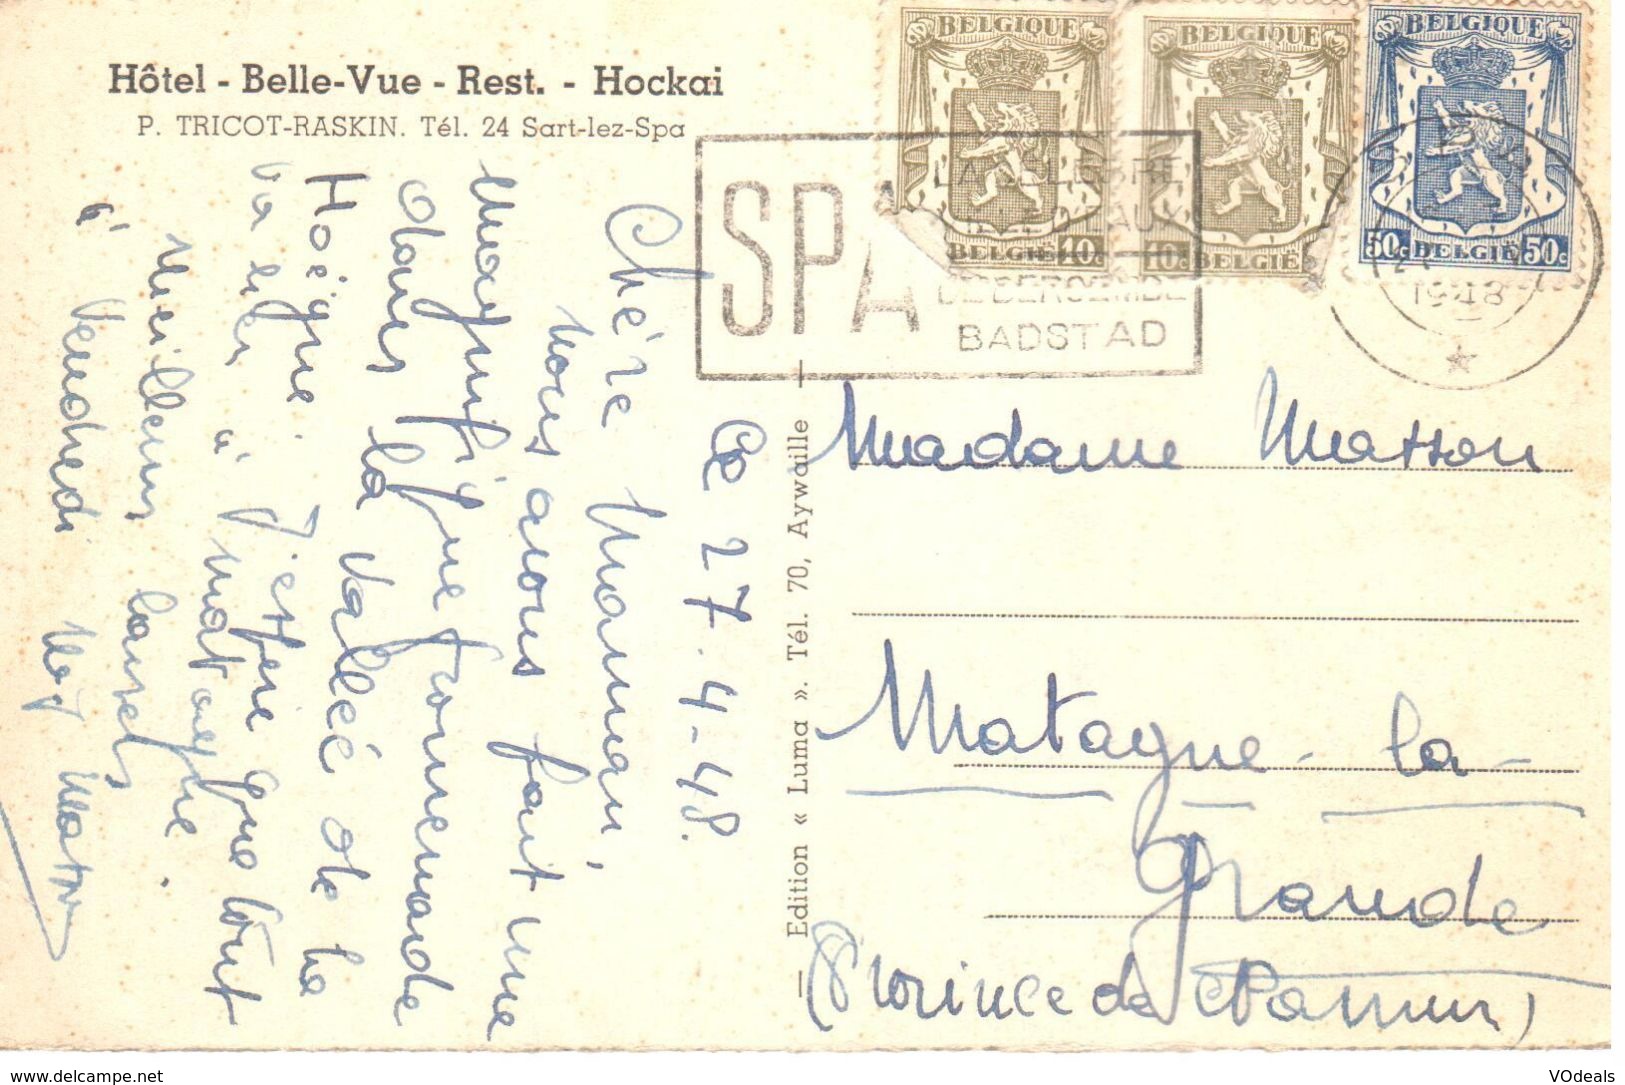 Hôtel - Belle-Vue - Rest. - Hockai
P. TRICOT-RASKIN. Tél. 24 Sart-lez-Spa
BELGIQUE
10c BELGIË
BELGIQUE
10c BELGIË
BELGIQUE
50c BELGIË 50c
SPA
BADSTAD
1948
Ce 27-4-48.
Chère Maman,
Nous avons fait une
magnifique promenade
dans la vallée de la
Hoëgne. J'espère que tout
va bien à Matagne.
Meilleurs baisers
à Vendredi
— Edition « Luma ». Tél. 70, Aywaille —
Madame Masson
Matagne-la-
Grande
(Province de Namur)
www.delcampe.net
VOdeals